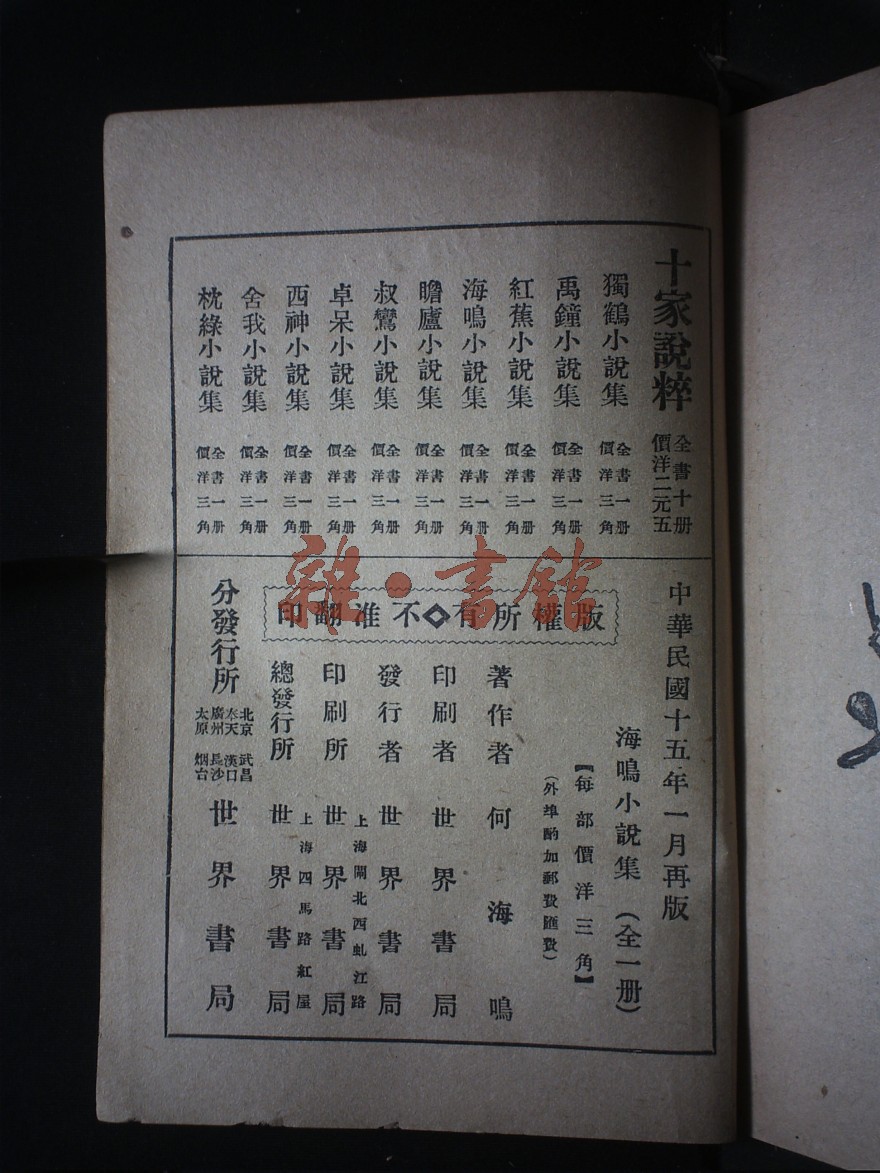 十家說粹
全書十册
價洋二元五
獨鶴小說集
全書一册
價洋三角
禹鐘小說集
全書一册
價洋三角
紅蕉小說集
全書一册
價洋三角
海鳴小說集
全書一册
價洋三角
瞻廬小說集
全書一册
價洋三角
叔鸞小說集
全書一册
價洋三角
卓呆小說集
全書一册
價洋三角
西神小說集
全書一册
價洋三角
舍我小說集
全書一册
價洋三角
枕綠小說集
全書一册
價洋三角
中華民國十五年一月再版
海鳴小說集（全一册）
【每部價洋三角】
（外埠酌加郵費匯費）
版權所有◇不准翻印
著作者 何海鳴
印刷者 世界書局
發行者 世界書局
上海閘北西虬江路
印刷所 世界書局
上海四馬路紅屋
總發行所 世界書局
分發行所
北京 武昌
奉天 漢口
廣州 長沙
太原 烟台
世界書局
雜·書館